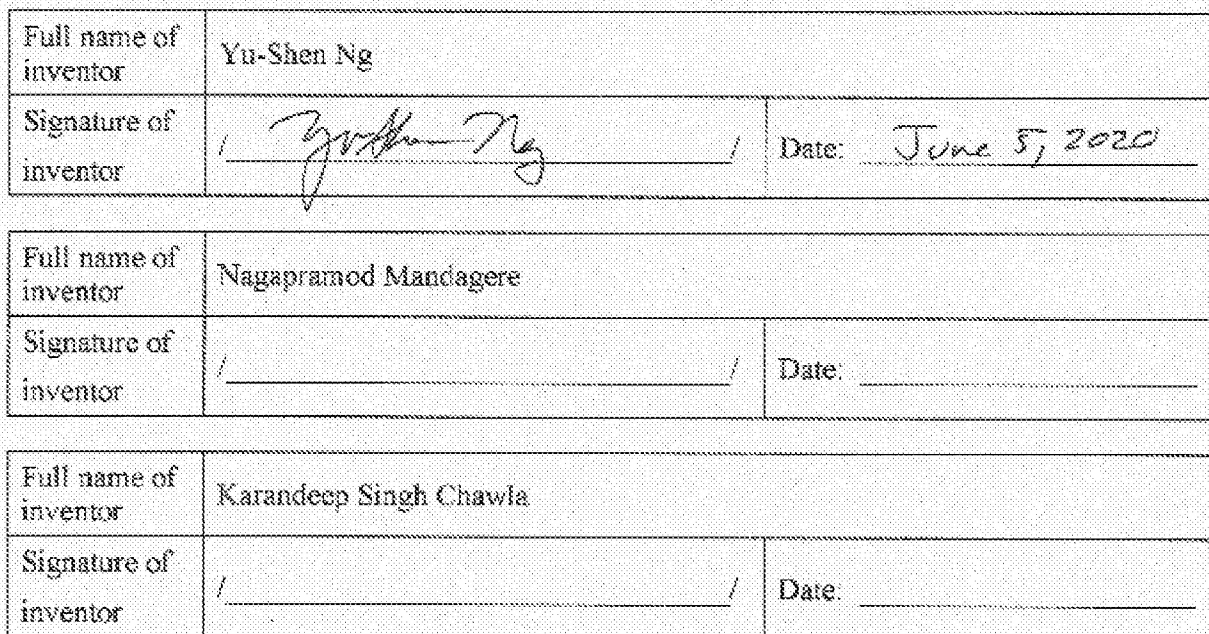 Full name of
inventor
Yu-Shen Ng
Signature of
inventor
/ Yu-Shen Ng /
Date: June 5, 2020
Full name of
inventor
Nagapramod Mandagere
Signature of
inventor
/ /
Date:
Full name of
inventor
Karandeep Singh Chawla
Signature of
inventor
/ /
Date: